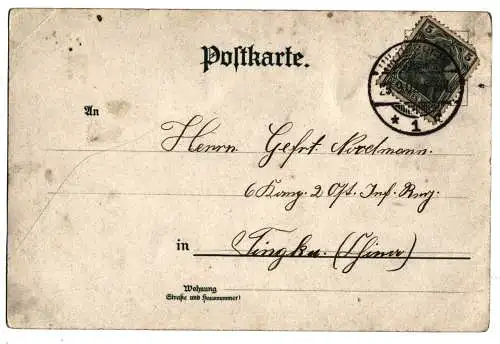 Postkarte.
5 5
* 1 *
An
Herrn Gefrt. Nordmann.
6 Komp. 2 Ost. Inf. Reg.
in Tingku. (China)
Wohnung
(Straße und Hausnummer)